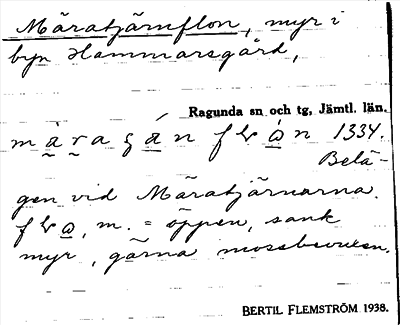 Märatjärnflon, myr i
byn Hammarsgård,
Ragunda sn och tg, Jämtl. län.
1334.
Belä-
gen vid Märatjärnarna.
m. = öppen, sank
myr, gärna mossbevuxen.
BERTIL FLEMSTRÖM 1938.